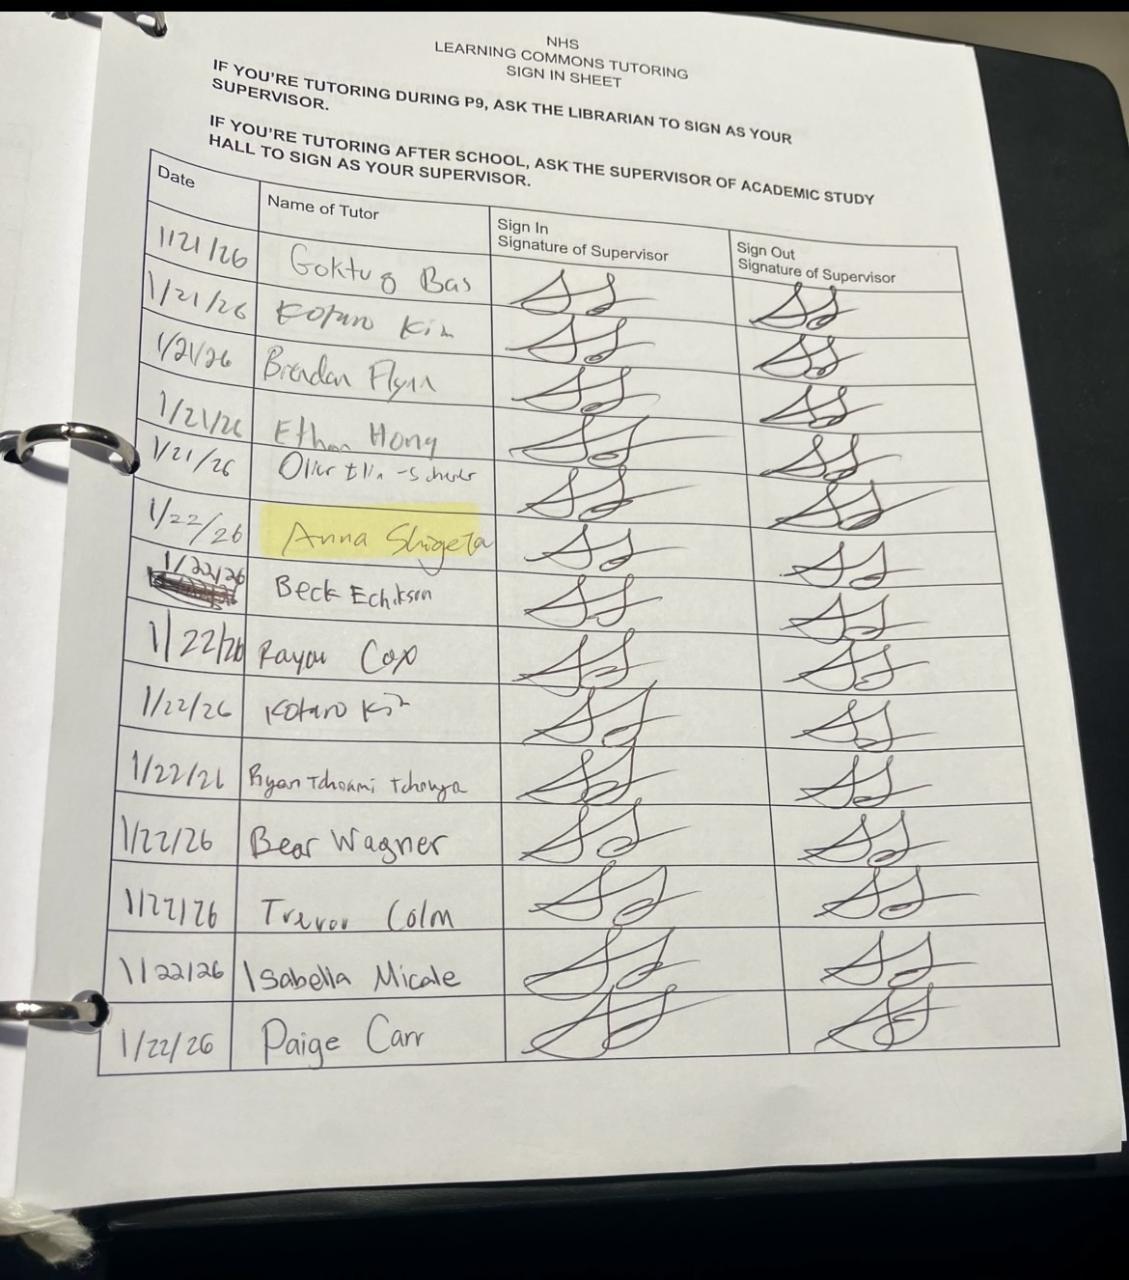 NHS
LEARNING COMMONS TUTORING
SIGN IN SHEET
IF YOU'RE TUTORING DURING P9, ASK THE LIBRARIAN TO SIGN AS YOUR
SUPERVISOR.
IF YOU'RE TUTORING AFTER SCHOOL, ASK THE SUPERVISOR OF ACADEMIC STUDY
HALL TO SIGN AS YOUR SUPERVISOR.
Date
Name of Tutor
Sign In
Signature of Supervisor
Sign Out
Signature of Supervisor
1/21/26 Goktug Bas
1/21/26 Kotaro Kim
1/21/26 Brendan Flynn
1/21/26 Ethan Hong
1/21/26
1/22/26 Anna Shigeta
1/22/26 Beck Echikson
1/22/26 Rayan Cox
1/22/26 Kotaro Kim
1/22/26 Ryan Tchouya
1/22/26 Bear Wagner
1/22/26 Trevor Colm
1/22/26 Isabella Micale
1/22/26 Paige Carr